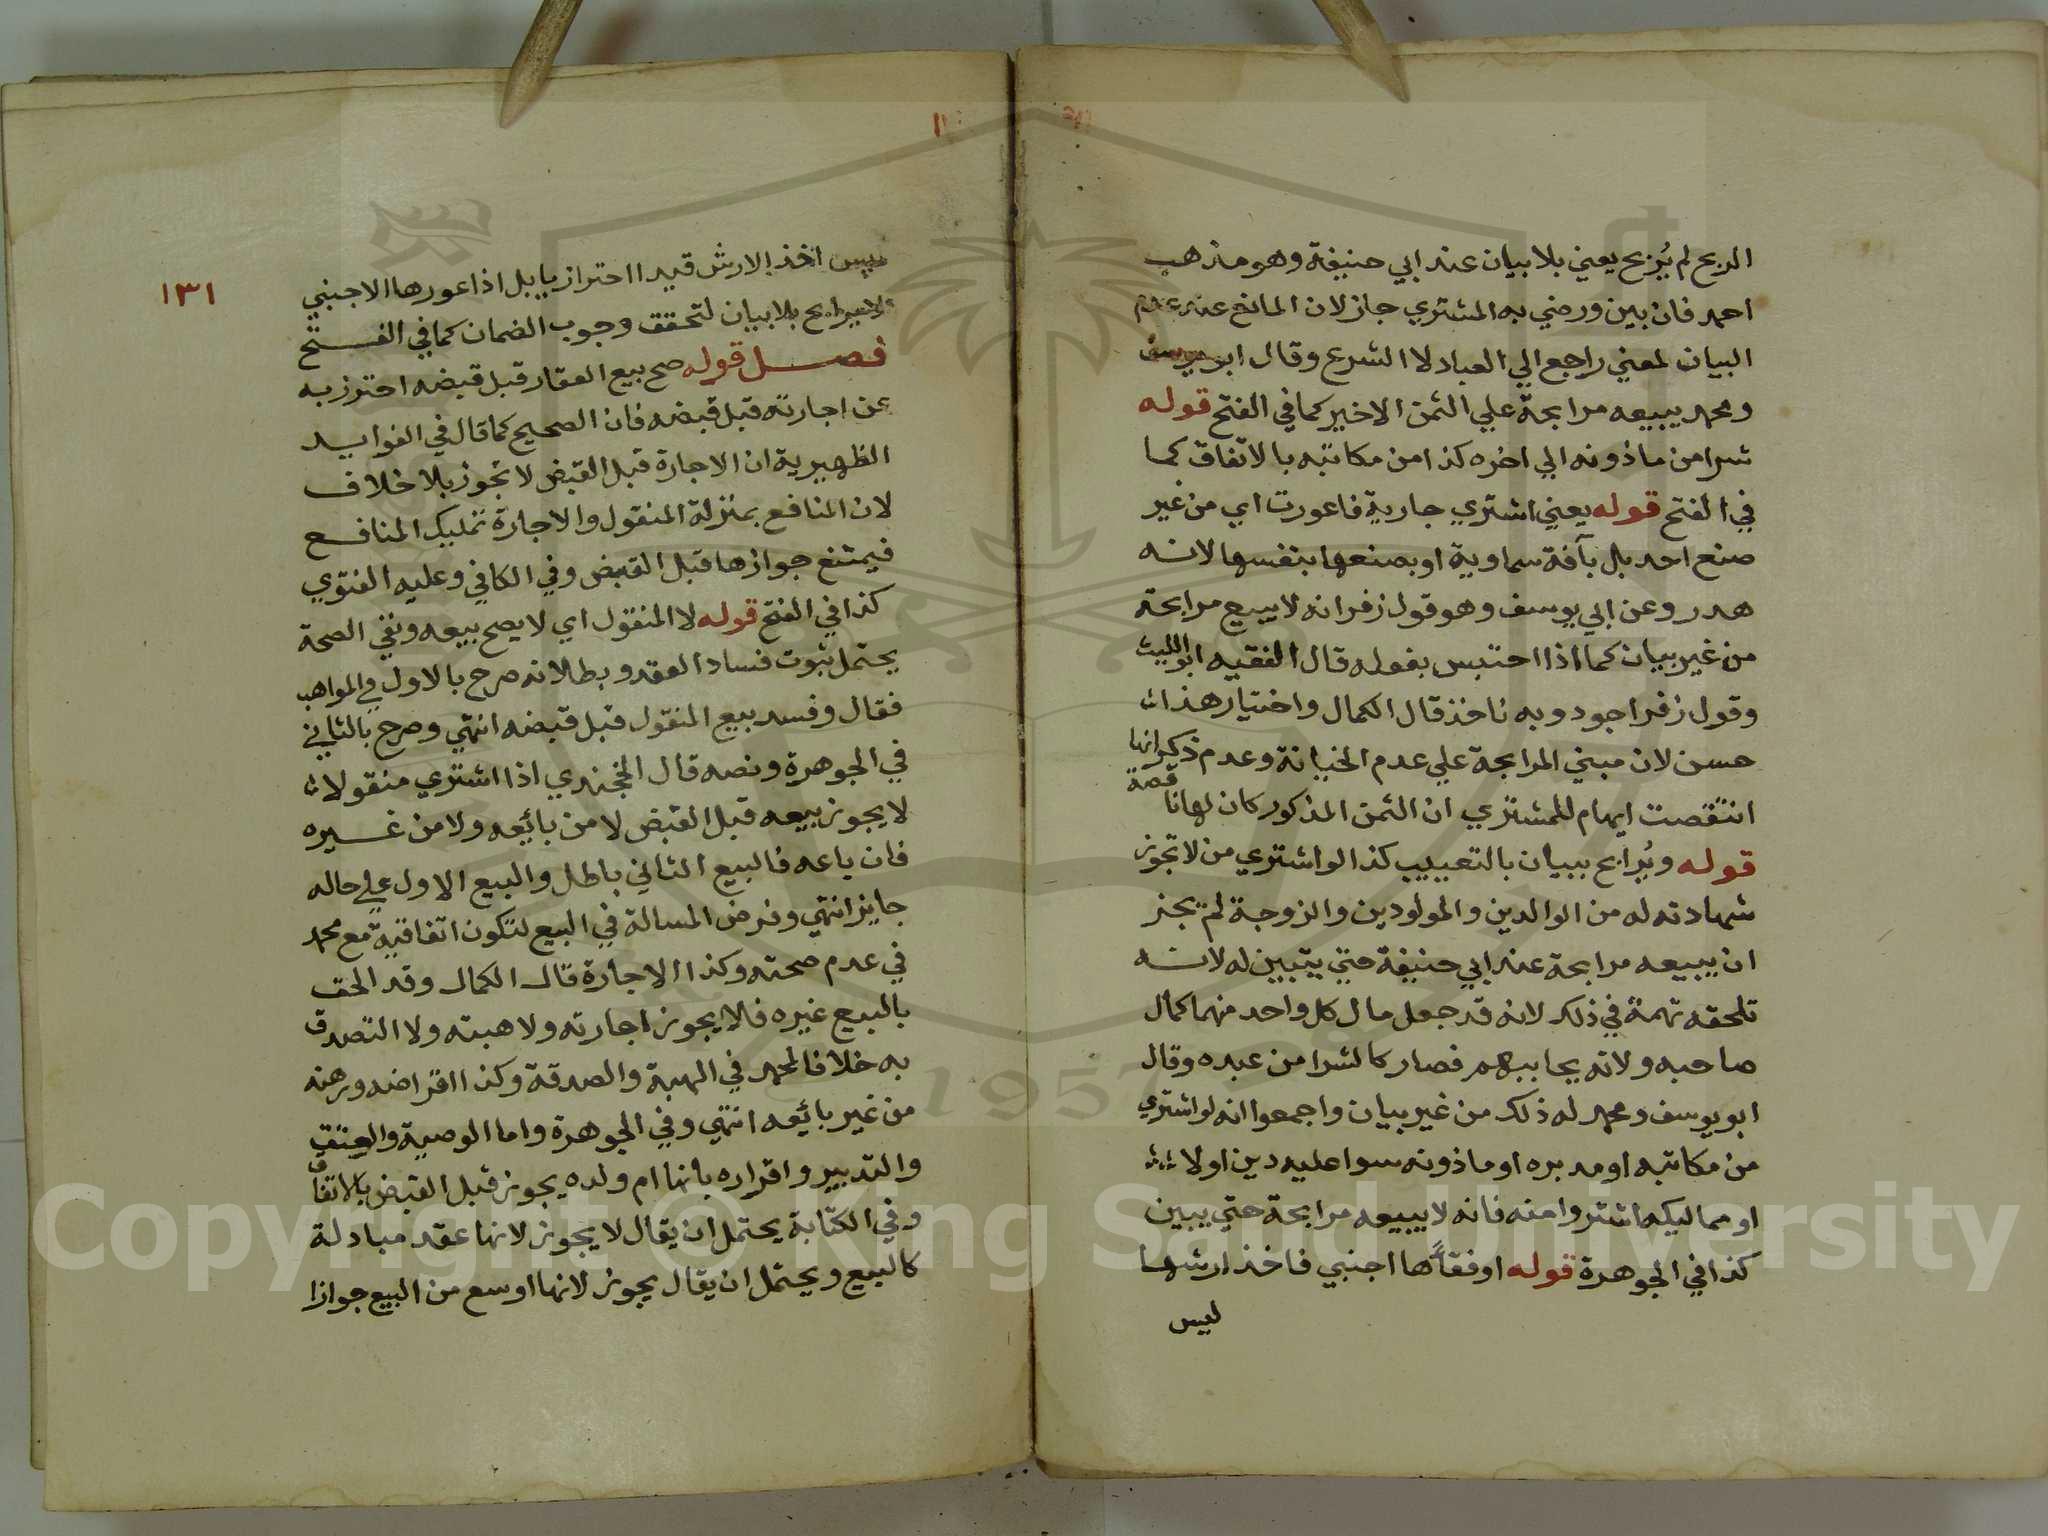 الربح لم يُربح يعني بلا بيان عند ابي حنيفة وهو مذهب
احمد فان بين ورضي به المشتري جاز لان المانع عنده عدم
البيان لمعني راجع الي العباد لا الشرع وقال ابو يوسف
ومحمد يبيعه مرابحة علي الثمن الاخير كما في الفتح قوله
شرا من ماذونه الي اخره كذا من مكاتبه بالاتفاق كما
في الفتح قوله يعني اشتري جارية فاعورت اي من غير
صنع احد بل بآفة سماوية او بصنعها بنفسها لانه
هدر وعن ابي يوسف وهو قول زفر انه لا يبيع مرابحة
من غير بيان كما اذا احتبس بفوله قال الفقيه ابو الليث
وقول زفر اجود وبه ناخذ قال الكمال واختيار هذا
حسن لان مبني المرابحة علي عدم الخيانة وعدم ذكر انها
انتقصت ايهام للمشتري ان الثمن المذكور كان لها ناقصة
قوله ويُرابح ببيان بالتعييب كذا لو اشتري من لا تجوز
شهادته له من الوالدين والمولودين والزوجة لم يجز
ان يبيعه مرابحة عند ابي حنيفة حتي يتبين له لانه
تلحقه تهمة في ذلك لانه قد جعل مال كل واحد منهما كمال
صاحبه ولانه يحابيهم فصار كالشرا من عبده وقال
ابو يوسف ومحمد له ذلك من غير بيان واجمعوا انه لو اشتري
من مكاتبه او مدبره او ماذونه سوا عليه دين اولا
او مماليكه اشتروا منه فانه لا يبيعه مرابحة حتي يبين
كذا في الجوهرة قوله او فقأها اجنبي فاخذ ارشها
ليس
١٣١
ليس اخذ الارش قيدا احترازيا بل اذا عورها الاجنبي
لا يرابح بلا بيان لتحقق وجوب الضمان كما في الفتح
فصل قوله صح بيع العقار قبل قبضه احترز به
عن اجارته قبل قبضه فان الصحيح كما قال في الفوايد
الظهيرية ان الاجارة قبل القبض لا تجوز بلا خلاف
لان المنافع بمنزلة المنقول والاجارة تمليك المنافع
فيمتنع جوازها قبل القبض وفي الكافي وعليه الفتوي
كذا في الفتح قوله لا المنقول اي لا يصح بيعه ونفي الصحة
يحتمل ثبوت فساد العقد وبطلانه صرح بالاول في المواهب
فقال وفسد بيع المنقول قبل قبضه انتهي وصرح بالثاني
في الجوهرة ونصه قال الخجندي اذا اشتري منقولا
لا يجوز بيعه قبل القبض لا من بائعه ولا من غيره
فان باعه فالبيع الثاني باطل والبيع الاول علي حاله
جايز انتهي وفرض المسالة في البيع لتكون اتفاقية مع محمد
في عدم صحته وكذا الاجارة قال الكمال وقد الحق
بالبيع غيره فلا يجوز اجارته ولا هبته ولا التصدق
به خلافا لمحمد في الهبة والصدقة وكذا اقراضه ورهنه
من غير بائعه انتهي وفي الجوهرة واما الوصية والعتق
والتدبير واقراره بانها ام ولده يجوز قبل القبض بالاتفاق
وفي الكتابة يحتمل ان يقال لا يجوز لانها عقد مبادلة
كالبيع ويحتمل ان يقال يجوز لانها اوسع من البيع جوازا
1957
Copyright © King Saud University